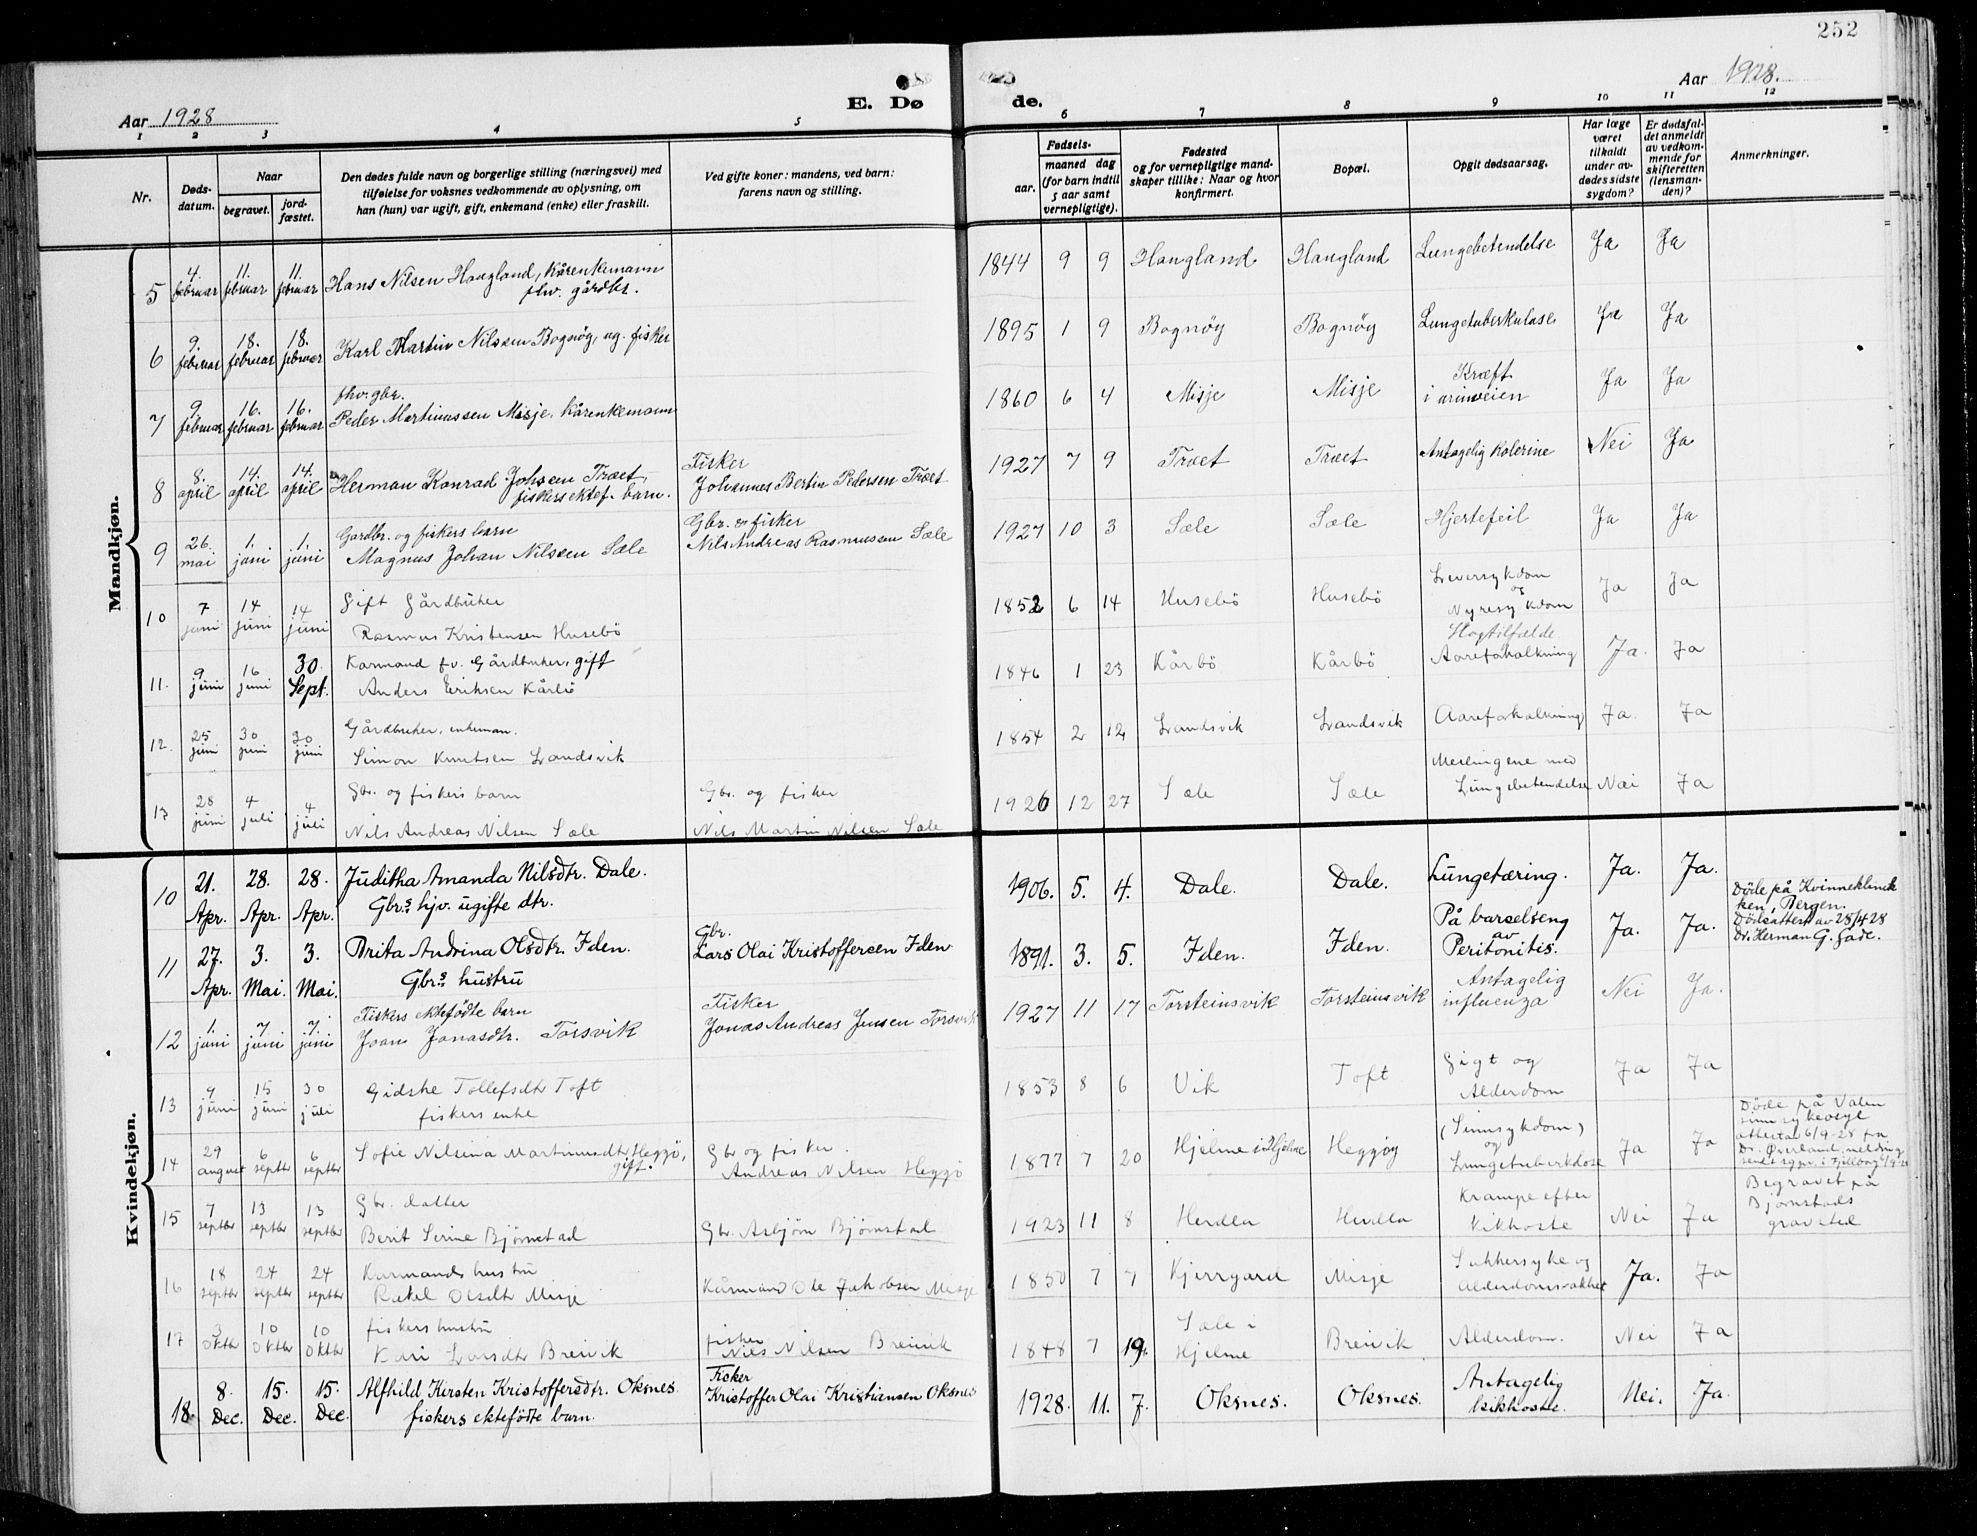 252
Aar 1928
E. Dø
de.
Aar 1928.
1 2 3 4 5 6 7 8 9 10 11 12
Nr.
Døds-datum.
Naar
begravet.
jord-fæstet.
Den dødes fulde navn og borgerlige stilling (næringsvei) med
tilføielse for voksnes vedkommende av oplysning, om
han (hun) var ugift, gift, enkemand (enke) eller fraskilt.
Ved gifte koner: mandens, ved barn:
farens navn og stilling.
Fødsels-
aar.
maaned dag
(for barn indtil
5 aar samt
vernepligtige).
Fødested
og for vernepligtige mand-
skaper tillike: Naar og hvor
konfirmert.
Bopæl.
Opgit dødsaarsag.
Har læge
været
tilkaldt
under av-
dødes sidste
sygdom?
Er dødsfal-
det anmeldt
av vedkom-
mende for
skifteretten
(lensman-
den)?
Anmerkninger.
Mandkjøn.
5 4. februar 11. februar 11. februar Hans Nilsen Haugland, kårenkemann
fhv. gårdbr. 1844 9 9 Haugland Haugland Lungebetendelse Ja Ja
6 9. februar 18. februar 18. februar Karl Martin Nilsen Bognøy, ug. fisker 1895 1 9 Bognøy Bognøy Lungetuberkulose Ja Ja
7 9. februar 16. februar 16. februar fhv. gbr.
Peder Martinussen Misje, kårenkemann 1860 6 4 Misje Misje Kræft
i armveien Ja Ja
8 8. april 14. april 14. april Herman Konrad Johsen Træet,
fiskers ektef. barn. Fisker
Johannes Bertin Pedersen Træet 1927 7 9 Træet Træet Antagelig kolerine Nei Ja
9 26. mai 1. juni 1. juni Gardbr. og fiskers barn
Magnus Johan Nilsen Sæle Gbr. en fisker
Nils Andreas Rasmussen Sæle 1927 10 3 Sæle Sæle Hjertefeil Ja Ja
10 7 juni 14 juni 14 juni Gift Gårdbruker
Rasmus Kristensen Husebö 1852 6 14 Husebö Husebö Leversykdom
og
Nyresykdom Ja Ja
11. 9 juni 16 juni 30 Sept. Karmand fv. Gårdbruker, gift
Anders Eriksen Kårbö 1846 1 23 Kårbö Kårbö Slagtilfælde
Aareforkalkning Ja. Ja
12. 25 juni 30 juni 30 juni Gårdbruker, enkeman.
Simon Knutsen Landsvik 1854 2 12 Landsvik Landsvik Aareforkalkning Ja. Ja
13 28 juni 4 juli 4 juli Gbr. og fiskers barn
Nils Andreas Nilsen Sæle Gbr. og fisker
Nils Martin Nilsen Sæle 1926 12 27 Sæle Sæle Meslingene med
Lungebetendelse Nei Ja
Kvindekjøn.
10 21. Apr. 28. Apr. 28. Apr. Juditha Amanda Nilsdtr. Dale.
Gbr.s hjv. ugifte dtr. 1906. 5. 4. Dale. Dale. Lungetæring. Ja. Ja.
11 27. Apr. 3. Mai. 3. Mai. Brita Andrina Olsdtr. Iden.
Gbr.s hustru Gbr.
Lars Olai Kristoffersen Iden. 1891. 3. 5. Iden. Iden. På barselseng
av
Peritonitis. Ja. Ja. Döde på Kvinneklinik
ken, Bergen.
Dødsattest av 28/4 28
Dr. Herman G. Gade.
12 1. juni 7. juni 7. juni Fiskers ektefödte barn
Joan Jonasdtr. Torsvik Fisker
Jonas Andreas Jensen Torsvik 1927 11 17 Torsteinsvik Torsteinsvik Antagelig
influenza Nei Ja.
13 9 juni 15 juni 30 juli Gidske Tollefsdtr Toft
fiskers enke 1853 8 6 Vik Toft Gigt og
Alderdom Ja Ja
14 29 august 6 septbr 6 septbr Sofie Nilsina Martinusdtr Heggö,
gift. Gbr og fisker.
Andreas Nilsen Heggö 1877 7 20 Hjelme i Hjelme Heggøy (Sinnsykdom)
og
Lungetuberkulose Ja Ja Döde på Valen
sinnsykeasyl
attestav 6/9-28 fra
Dr. Øverland, melding
15 7 septbr 13 septbr 13 septbr Gbr. datter
Berit Serine Bjørnstad Gbr. Asbjørn Bjørnstad 1923 11 8 Herdla Herdla Krampe efter
kikhoste Nei Ja Begravet på
Bjørnstads
gravsted
16 18 septbr 24 septbr 24 septbr Karmands hustru
Rakel Olsdtr Misje Kårmand Ole Jakobsen Misje 1850 7 7 Kjerrgard Misje Sukkersyke og
Alderdomssvakhet Ja. Ja
17 3 oktbr 10 oktbr 10 oktbr fiskers hustru
Kari Larsdtr Breivik fisker
Nils Nilsen Breivik 1848 7 19. Sæle i
Hjelme Breivik Alderdom. Nei Ja
18. 8. Dec. 15. Dec. 15. Dec. Alfhild Kirsten Kristoffersdtr. Oksnes.
fiskers ektefödte barn. Fisker
Kristoffer Olai Kristiansen Oksnes 1928. 11. 7. Oksnes. Oksnes. Antagelig
kikhoste. Nei. Ja.